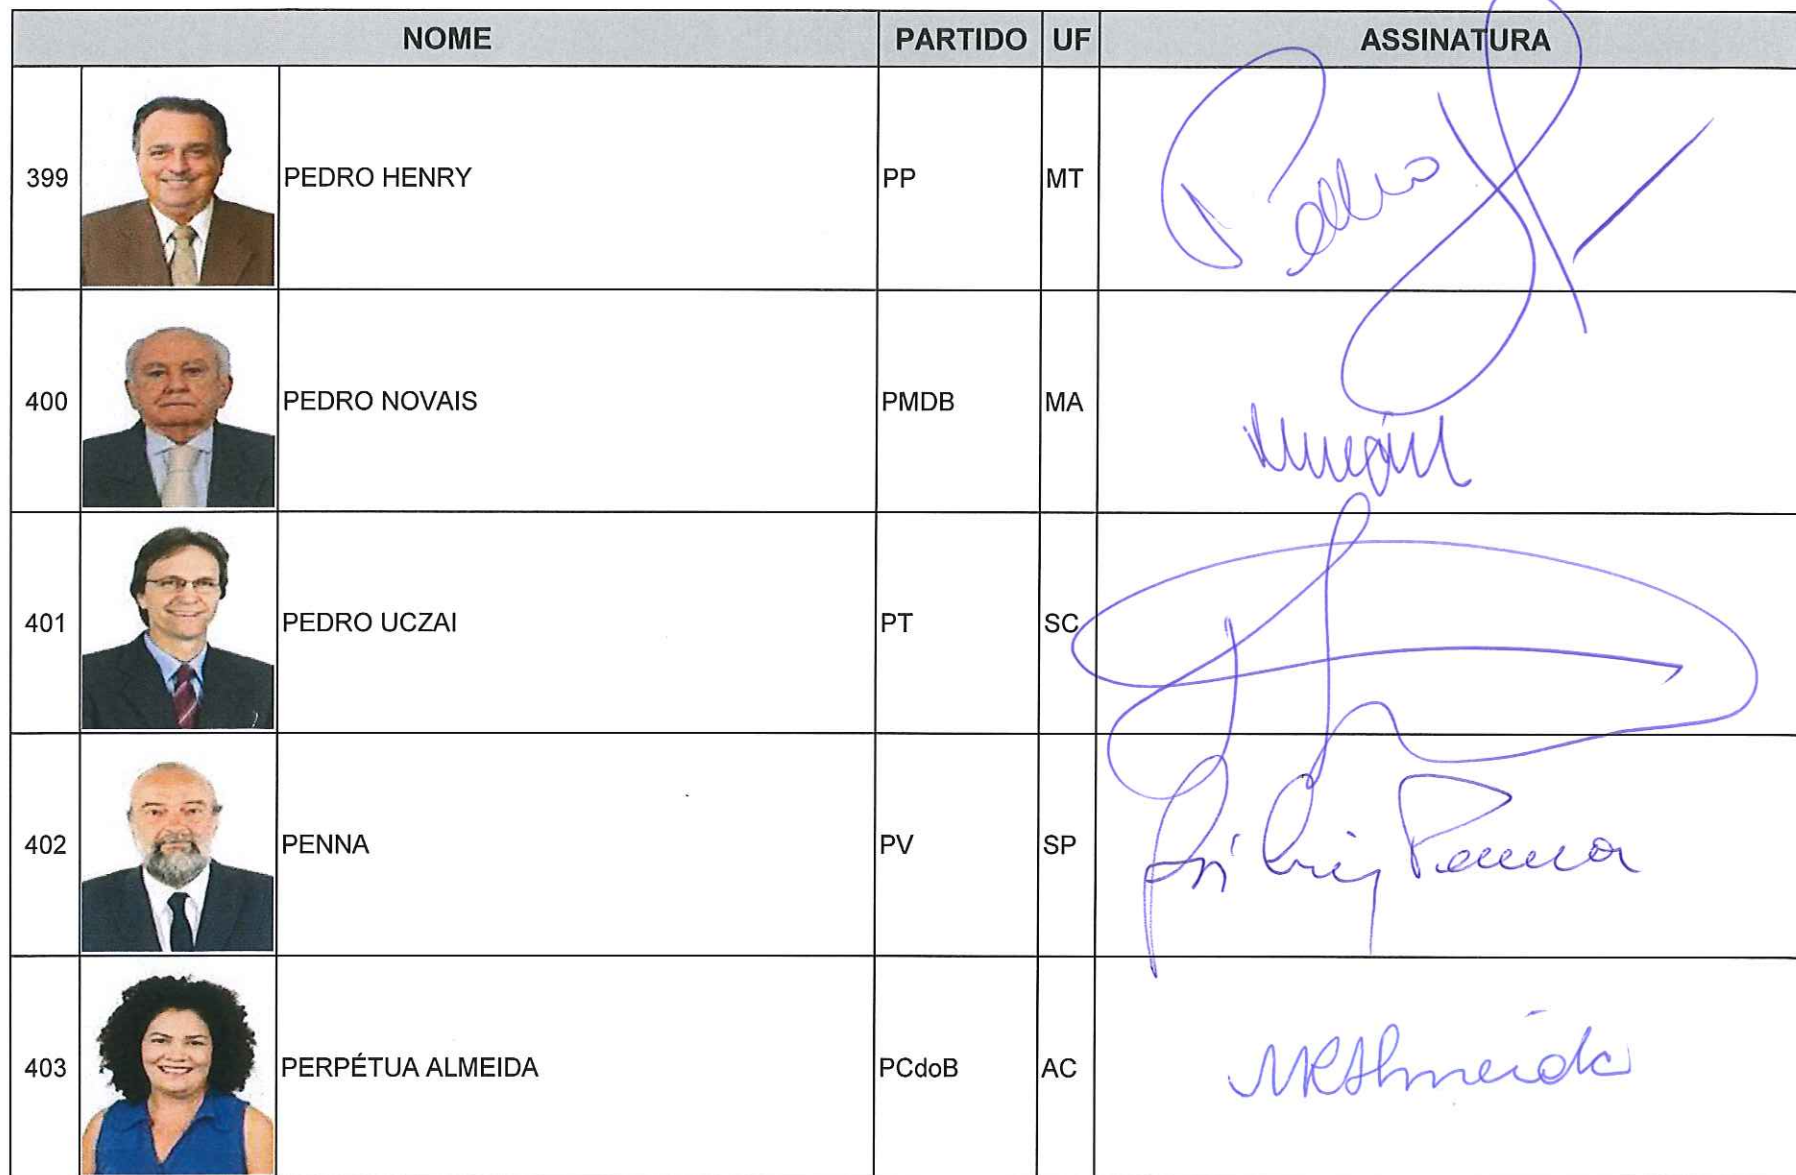 NOME PARTIDO UF ASSINATURA
399 PEDRO HENRY PP MT Pedro
400 PEDRO NOVAIS PMDB MA
401 PEDRO UCZAI PT SC
402 PENNA PV SP Penna
403 PERPÉTUA ALMEIDA PCdoB AC MPAlmeida